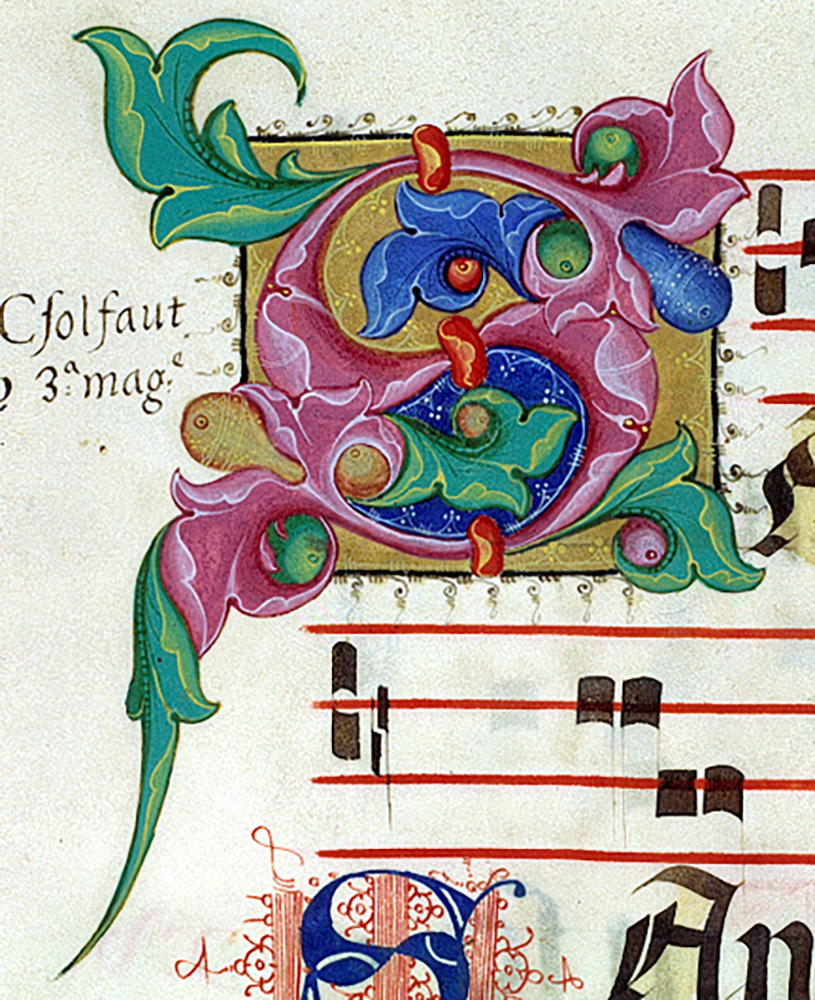 S
Cſolfaut
y 3.ª mag.ᵉ
SAn